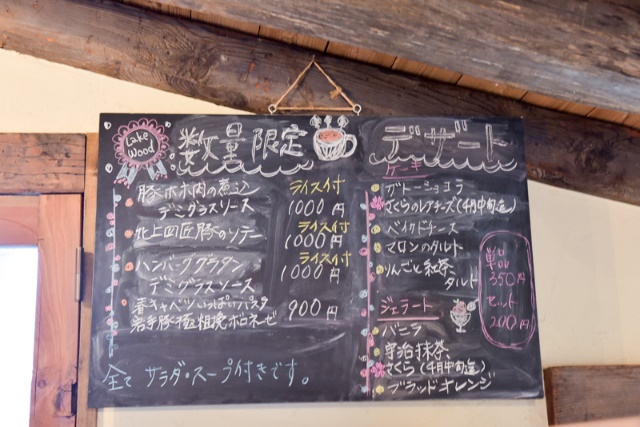 Lake
Wood
数量限定
豚ホホ肉の煮込
ライス付
デミグラスソース
1000円
北上四匠豚のソテー
ライス付
1000円
ハンバーググラタン
ライス付
1000円
デミグラスソース
春キャベツいっぱいパスタ
900円
岩手豚極粗挽ボロネーゼ
全て サラダ・スープ付きです。
デザート
ケーキ
ガトーショコラ
さくらのレアチーズ(4月中旬迄)
ベイクドチーズ
マロンのタルト
りんごと紅茶
タルト
単品
350円
セット
200円
ジェラート
バニラ
宇治抹茶
さくら(4月中旬迄)
ブラッドオレンジ